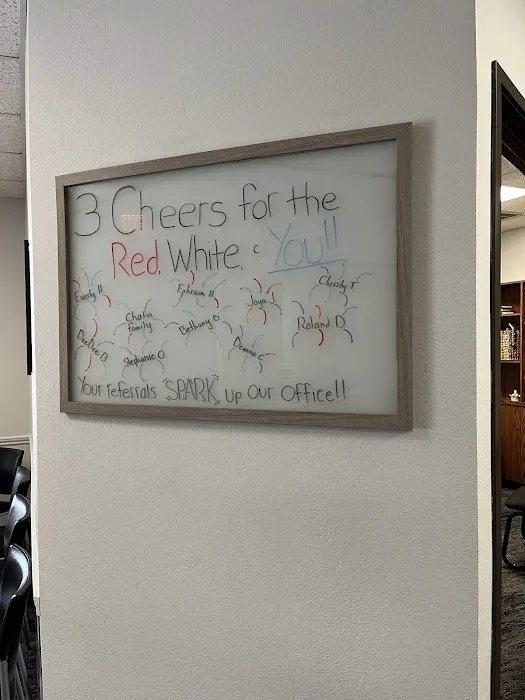 3 Cheers for the
Red, White, & You!!
Everly H.
Ephraim H
Joya J.
Christy T
Chafin family
Bethany B
Roland D.
DeeDee B.
Stephanie O.
Donna C
Your referrals "SPARK" up our office!!